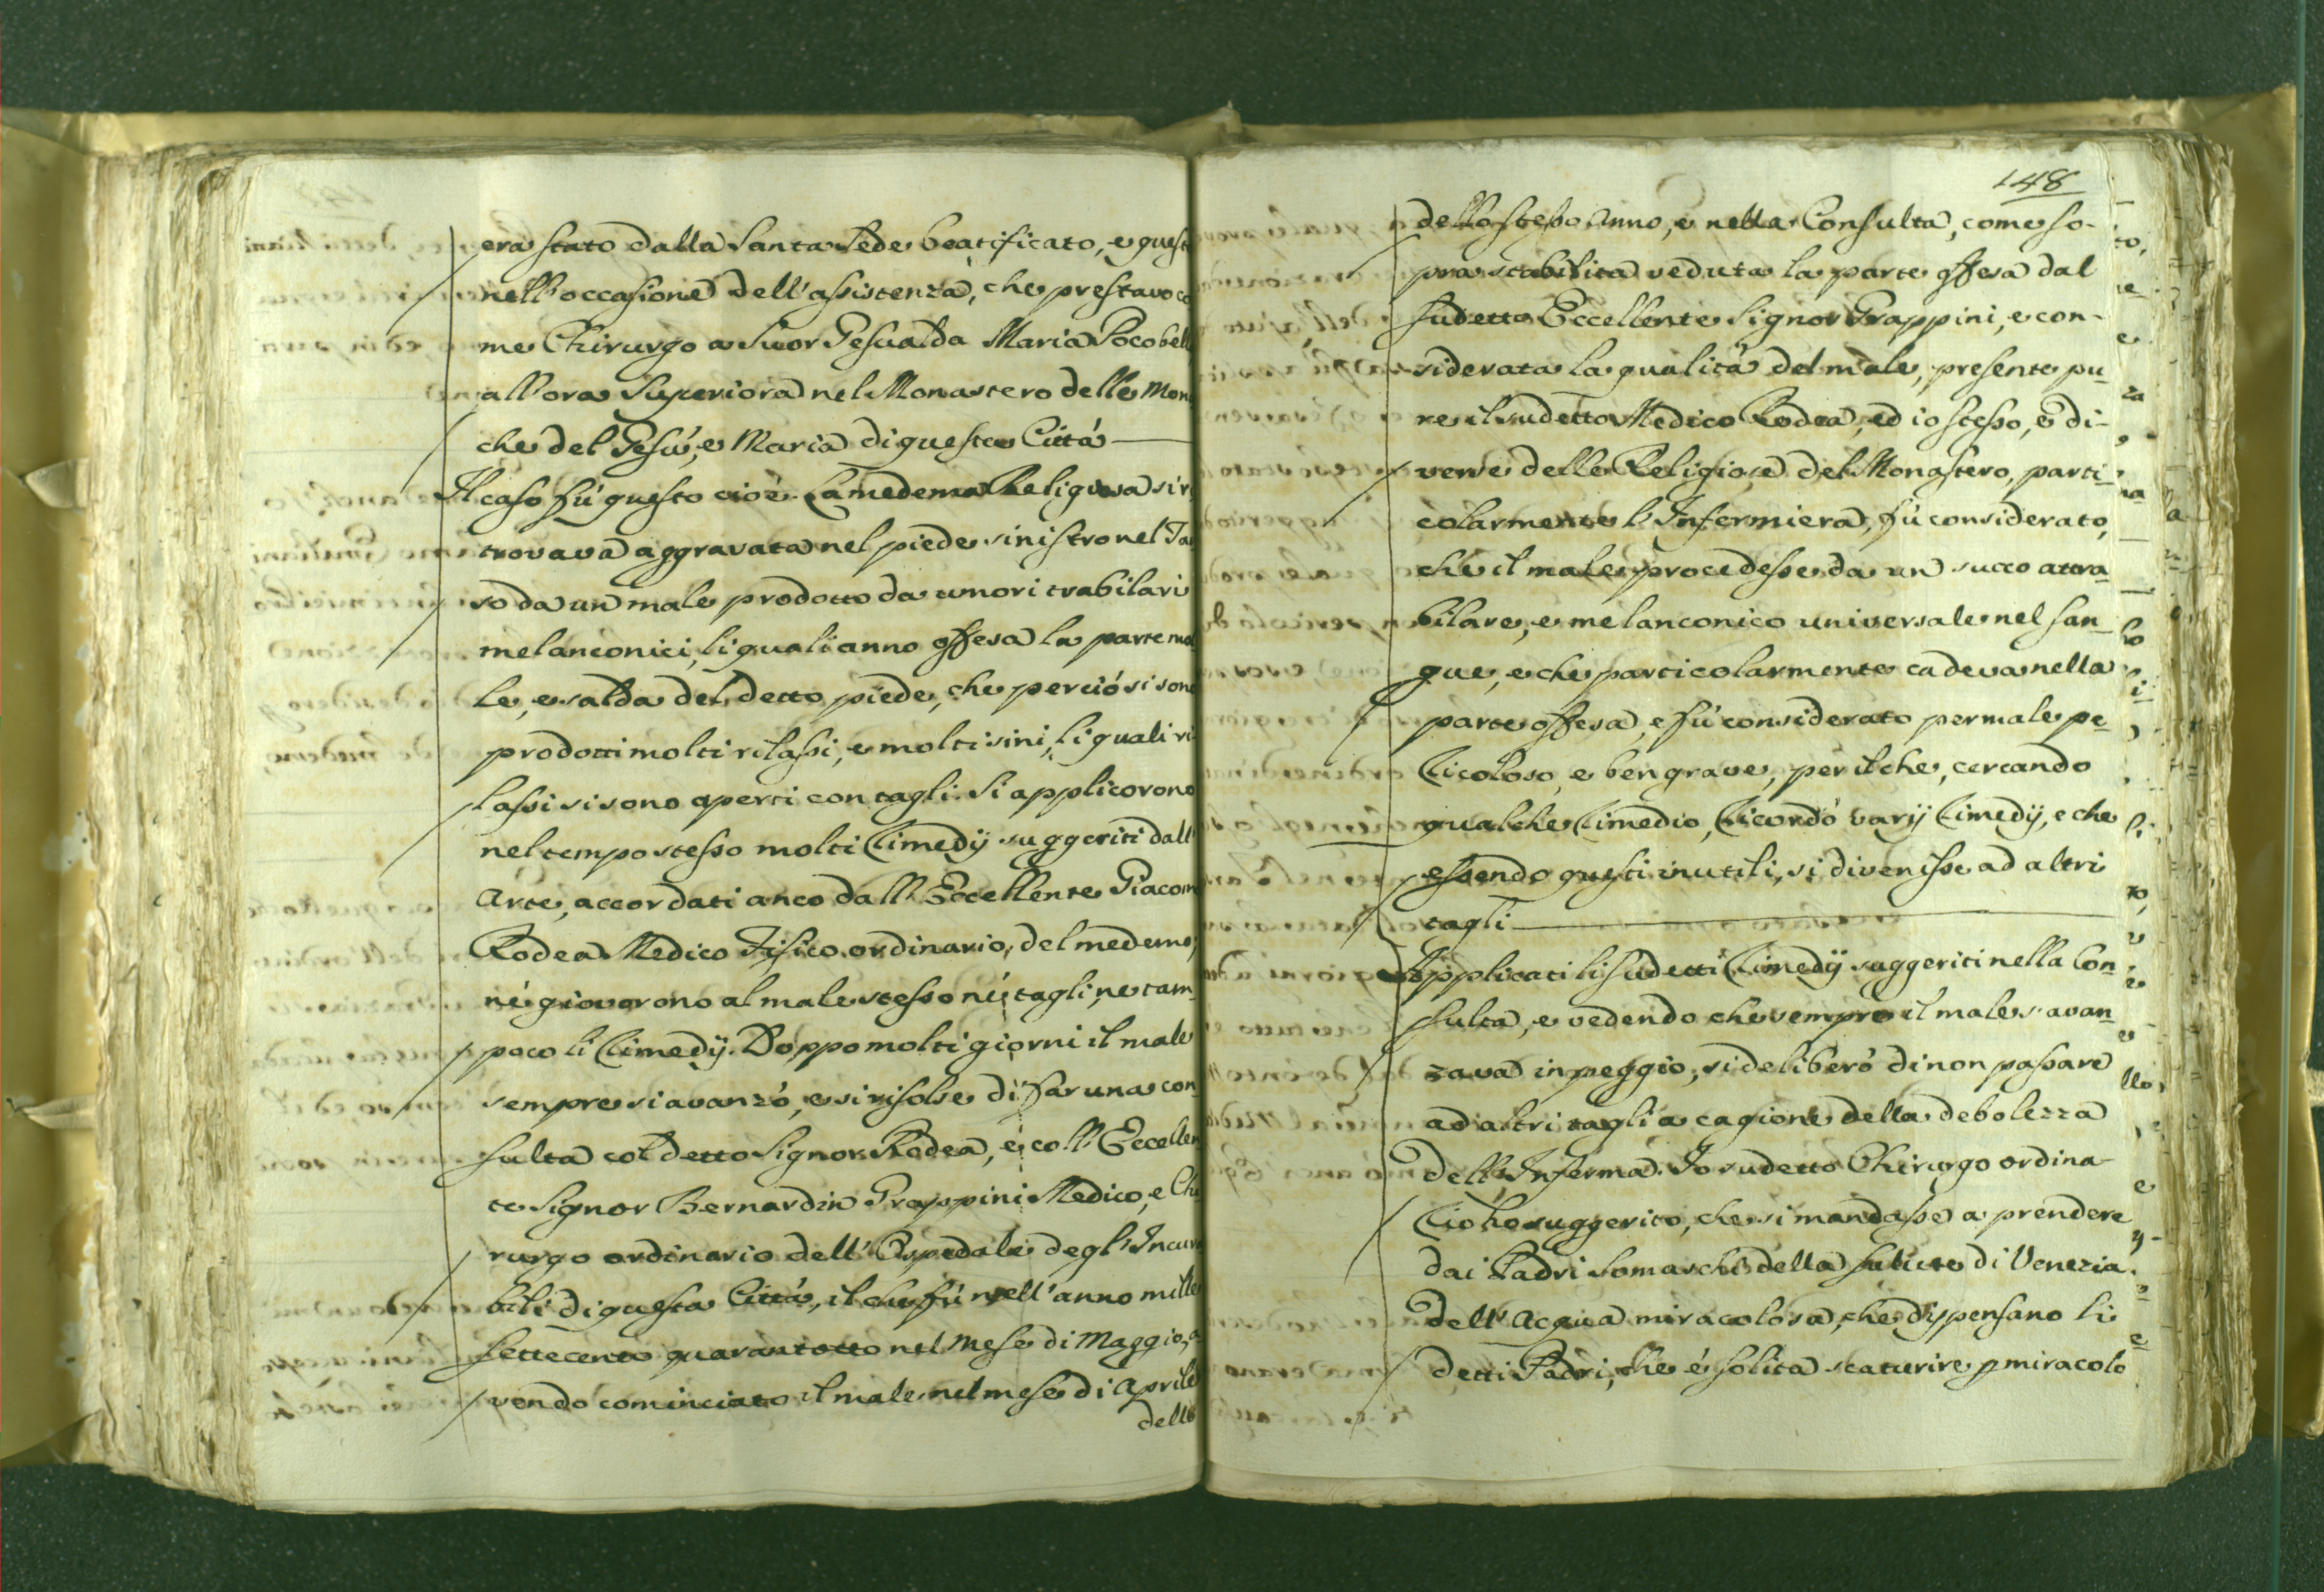 era stato dalla Santa Sede beatificato, e quest
nell'occasione dell'assistenza, che prestavo co
me Chirurgo a Suor Gesualda Maria Pocobell
all'ora Superiora nel Monastero delle Mon
che del Gesù, e Maria di questa Città
Il caso fù questo cioè. La medema Religiosa si ri
trovava aggravata nel piede sinistro nel Tar
so da un male prodotto da umori trabilari
melanconici, li quali anno offesa la parte mol
le, e salda del detto piede, che perciò si sono
prodotti molti rilassi, e molti sini, li quali ri
lassi si sono aperti con tagli. Si applicorono
nel tempo stesso molti Rimedij suggeriti dall'
Arte, accordati anco dall'Eccellente Giacom
Rodea Medico Fisico ordinario, del medemo,
nè giovorono al male stesso nè tagli, ne tam-
poco li Rimedij. Doppo molti giorni il male
sempre si avanzò, e si risolse di far una con
sulta col detto Signor Rodea, e coll'Eccellen
te Signor Bernardin Grappini Medico, e Chi
rurgo ordinario dell'Ospedale degl'Incura
bili di questa Città, il che fù nell'anno mille
settecento quarantotto nel mese di Maggio, a
vendo cominciato il male nel mese di Aprile
dello
148
dello stesso Anno, e nella Consulta, come so-
pra stabilita veduta la parte offesa dal
sudetto Eccellente Signor Grappini, e con-
siderata la qualità del male, presente pu-
re il sudetto Medico Rodea, ed io stesso, e di-
verse delle Religiose del Monastero, parti-
colarmente l'Infermiera, fù considerato,
che il male procedesse da un succo attra-
bilare, e melanconico universale nel san-
gue, e che particolarmente cadeva nella
parte offesa, e fù considerato per male pe-
ricoloso, e ben grave, per il che, cercando
qualche Rimedio, Ricordò varij Rimedij, e che
essendo questi inutili, si divenisse ad altri
tagli
Applicati li sudetti Rimedij suggeriti nella Con-
sulta, e vedendo che sempre il male s'avan-
zava in peggio, si deliberò di non passare
ad altri tagli a cagione della debolezza
dell'Inferma. Io sudetto Chirurgo ordina-
rio ho suggerito, che si mandasse a prendere
dai Padri Somaschi della Salute di Venezia
dell'Acqua miracolosa, che dispensano li
detti Padri, che è solita scaturire p miracolo